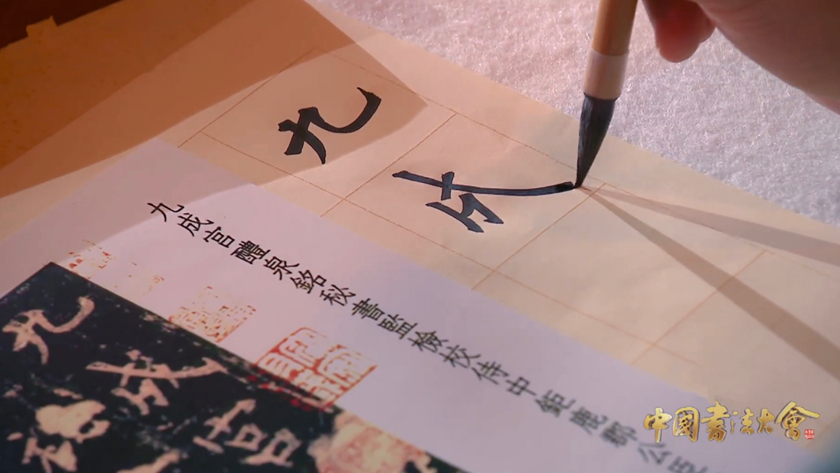 九
九成宮醴泉銘秘書監檢校侍中鉅鹿郡公臣
九成宮
中國書法大會